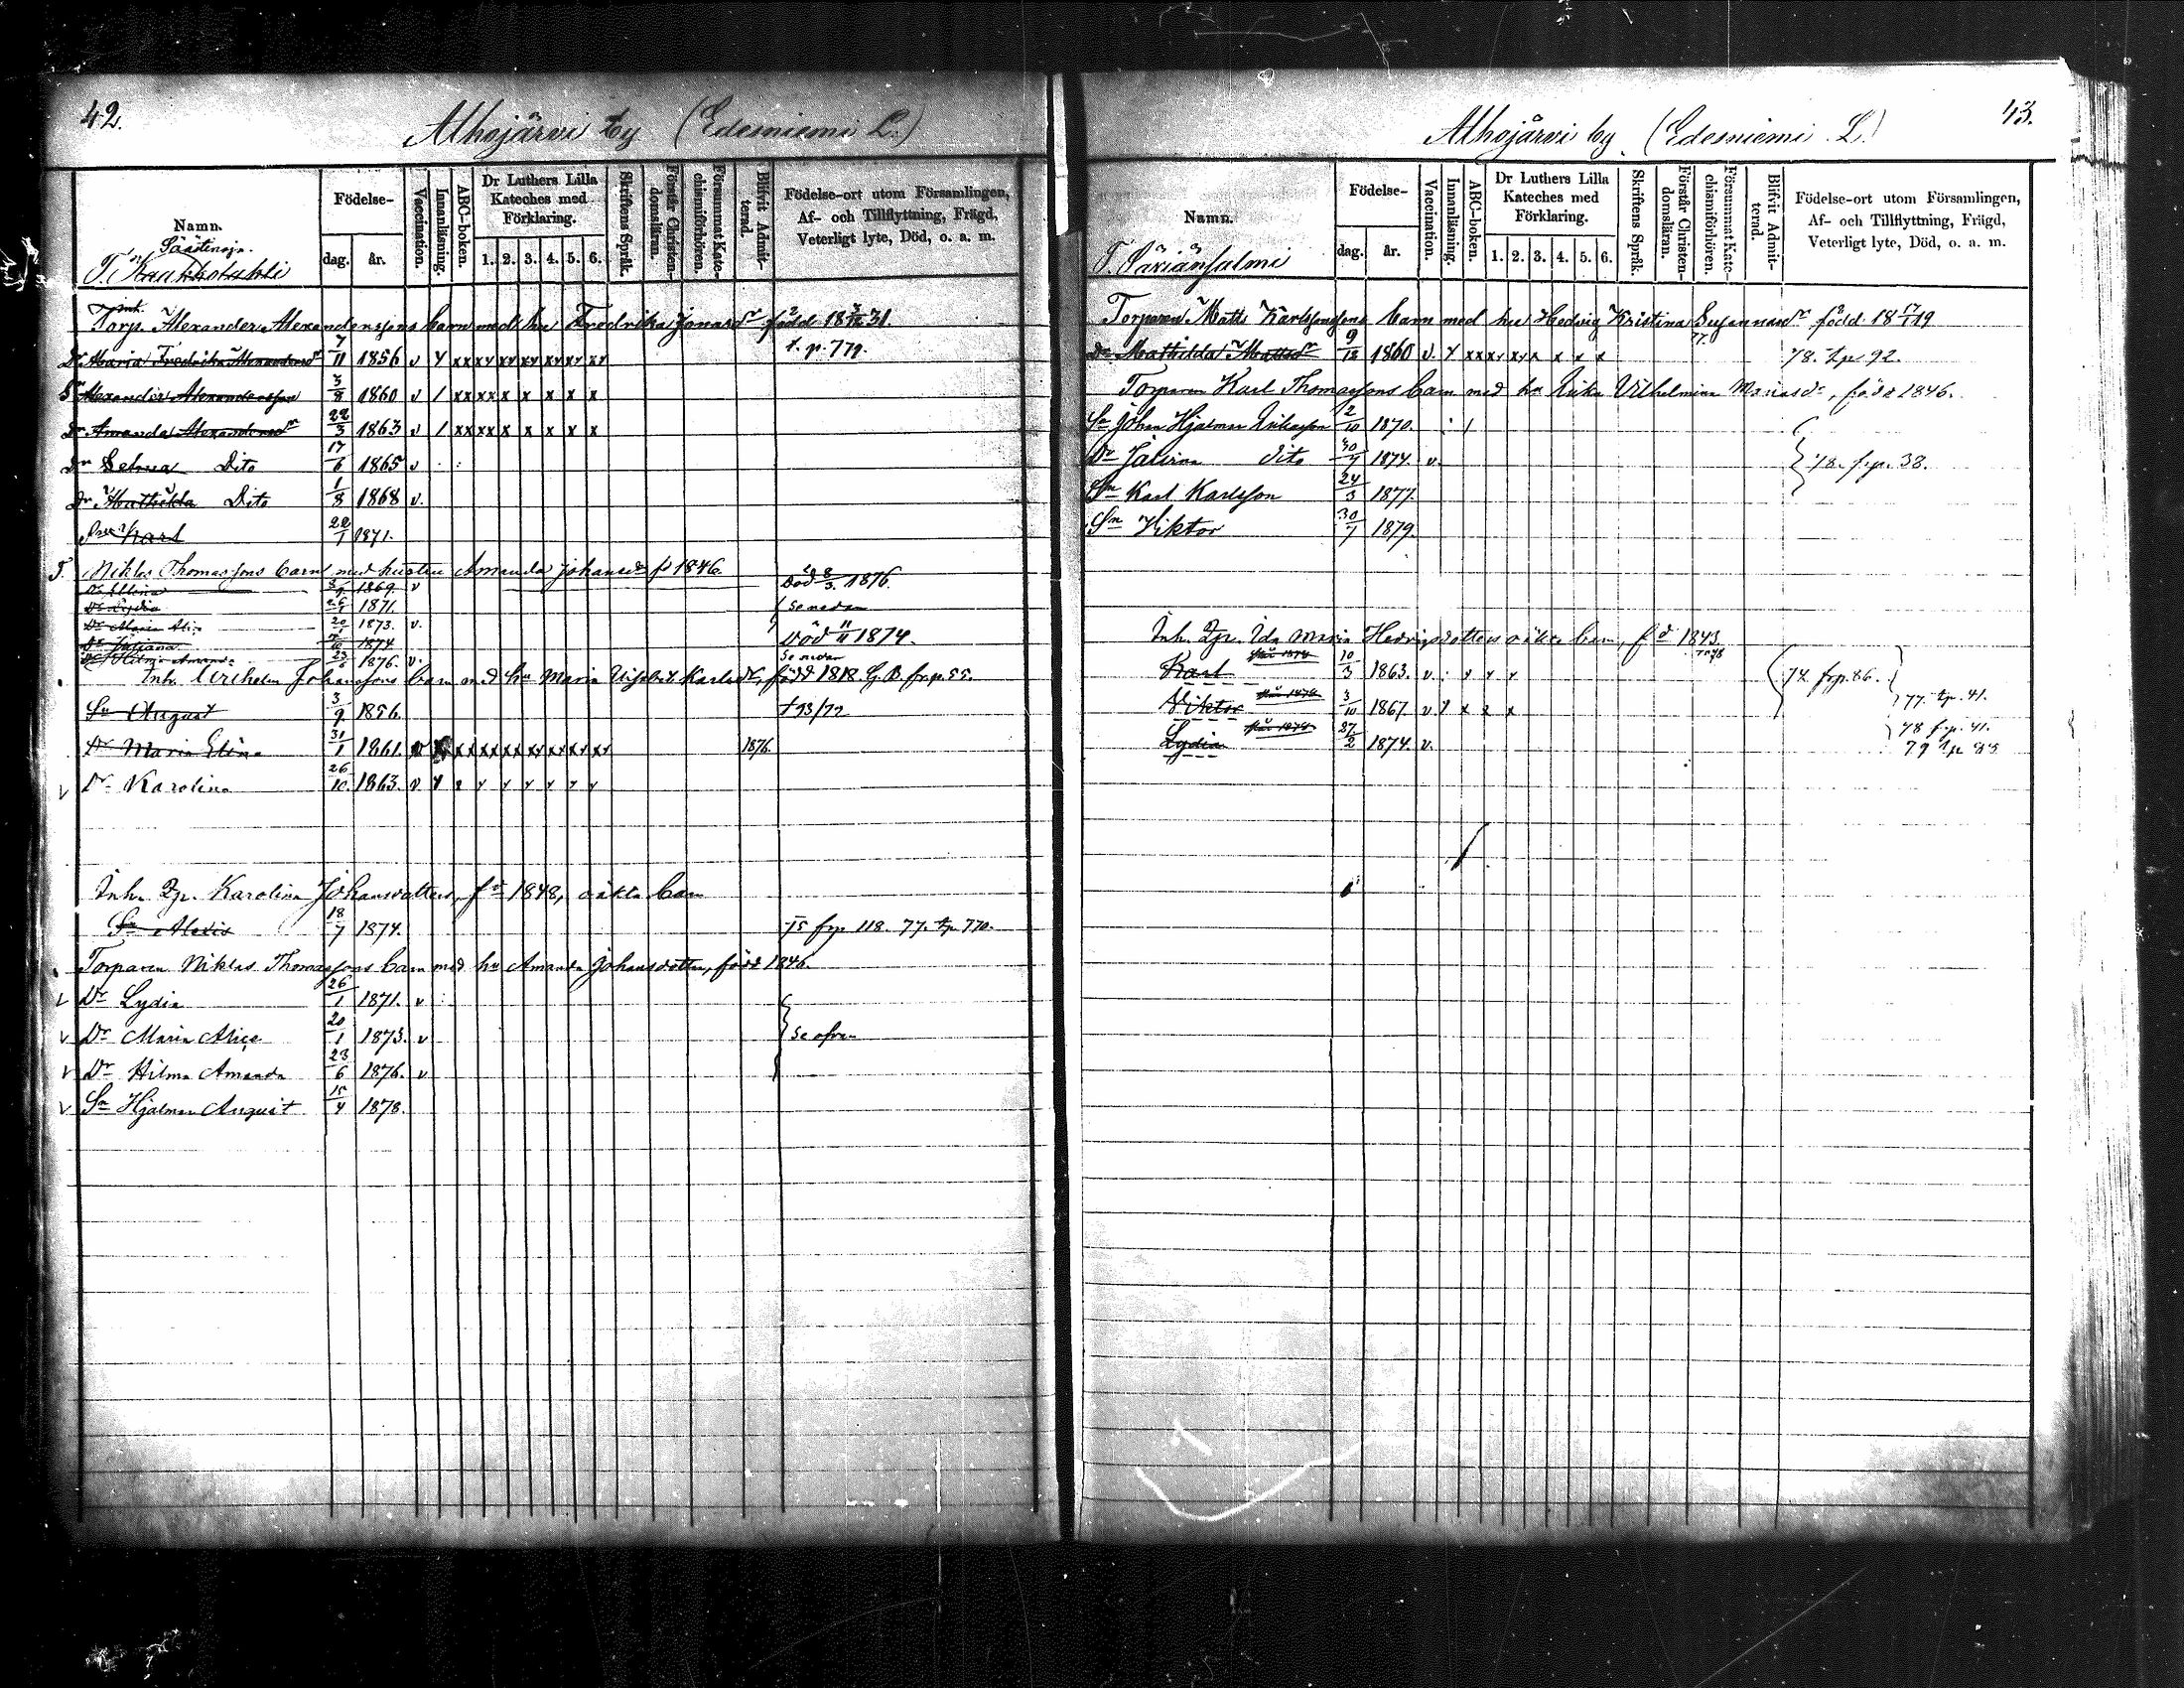 42.
Alhojärvi by (Edesniemi L.)
Namn.
Födelse-
dag.
år.
Vaccination.
Innanläsning.
ABC-boken.
Dr Luthers Lilla
Kateches med
Förklaring.
1. 2. 3. 4. 5. 6.
Skriftens Språk.
Förstår Christen-
domsläran.
Försummat Kate-
chismiförhören.
Blifvit Admit-
terad.
Födelse-ort utom Församlingen,
Af- och Tillflyttning, Frägd,
Veterligt lyte, Död, o. a. m.
Torp. Alexander Alexanderssons barn med hu Fredrika Jonasdr född 18 31.
Dr Maria Fredrika Alexandersdr 7/11 1856 v
t. p. 779.
Sn Alexander Alexandersson 3/8 1860 v
Dr Amanda Alexandersdr 22/3 1863 v
Dr Selma Dito 17/6 1865 v
Dr Mathilda Dito 1/8 1868 v.
Karl 22/1 1871.
T. Niklas Thomassons barn med hustru Amanda Johansdr fd 1846
1869. v Död 8/3 1876.
Dr Lydia 26/1 1871. Se nedan
Dr Maria 20/1 1873. v.
1874 Död 11/11 1874.
Dr Hilma Amanda 23/6 1876. v. Se nedan
Inh. Wilhelm Johanssons barn med hu Maria Lisabet Karlsdr, född 1818 G. B. fr. p. 55.
Sn August 3/9 1856. † 13/72
Dr Maria Elina 31/1 1861. 1876.
Dr Karolina 26/10 1863. v
Inh. Qp. Karolina Johansdotters, fd 1848, oäkta barn
Sn Alexis 18/7 1874. 75 frp. 118. 77. tp 770.
Torparen Niklas Thomassons barn med hu Amanda Johansdotter, född 1846.
Dr Lydia 26/1 1871. v
Dr Maria Alice 20/1 1873. v Se ofvan
Dr Hilma Amanda 23/6 1876. v
Sn Hjalmar August 15/4 1878.
43.
Alhojärvi by (Edesniemi L.)
Namn.
T. Särjänsalmi
Födelse-
dag.
år.
Vaccination.
Innanläsning.
ABC-boken.
Dr Luthers Lilla
Kateches med
Förklaring.
1. 2. 3. 4. 5. 6.
Skriftens Språk.
Förstår Christen-
domsläran.
Försummat Kate-
chismiförhören.
Blifvit Admit-
terad.
Födelse-ort utom Församlingen,
Af- och Tillflyttning, Frägd,
Veterligt lyte, Död, o. a. m.
Torparen Matts Karlssons barn med hu Hedvig Kristina Susannasdr född 18 19
Dr Mathilda Mattsdr 9/12 1860 v. 77. 78. tp. 92.
Torparen Karl Thomassons barn med hu Erika Vilhelmina Mariasdr, född 1846.
Sn Johan Hjalmar Eriksson 2/10 1870.
Dr dito 30/9 1874. v. 78. frp. 38.
Sn Karl Karlsson 24/3 1877.
Sn Viktor 30/7 1879.
Inh. Qp. Ida Maria Hedvigsdotters oäkta barn, fd 1843
Karl 10/3 1863. v 72 frp. 86.
Viktor 3/10 1867. v 77. tp. 41.
78 frp. 41.
Lydia 27/2 1874. v. 79 tp 83